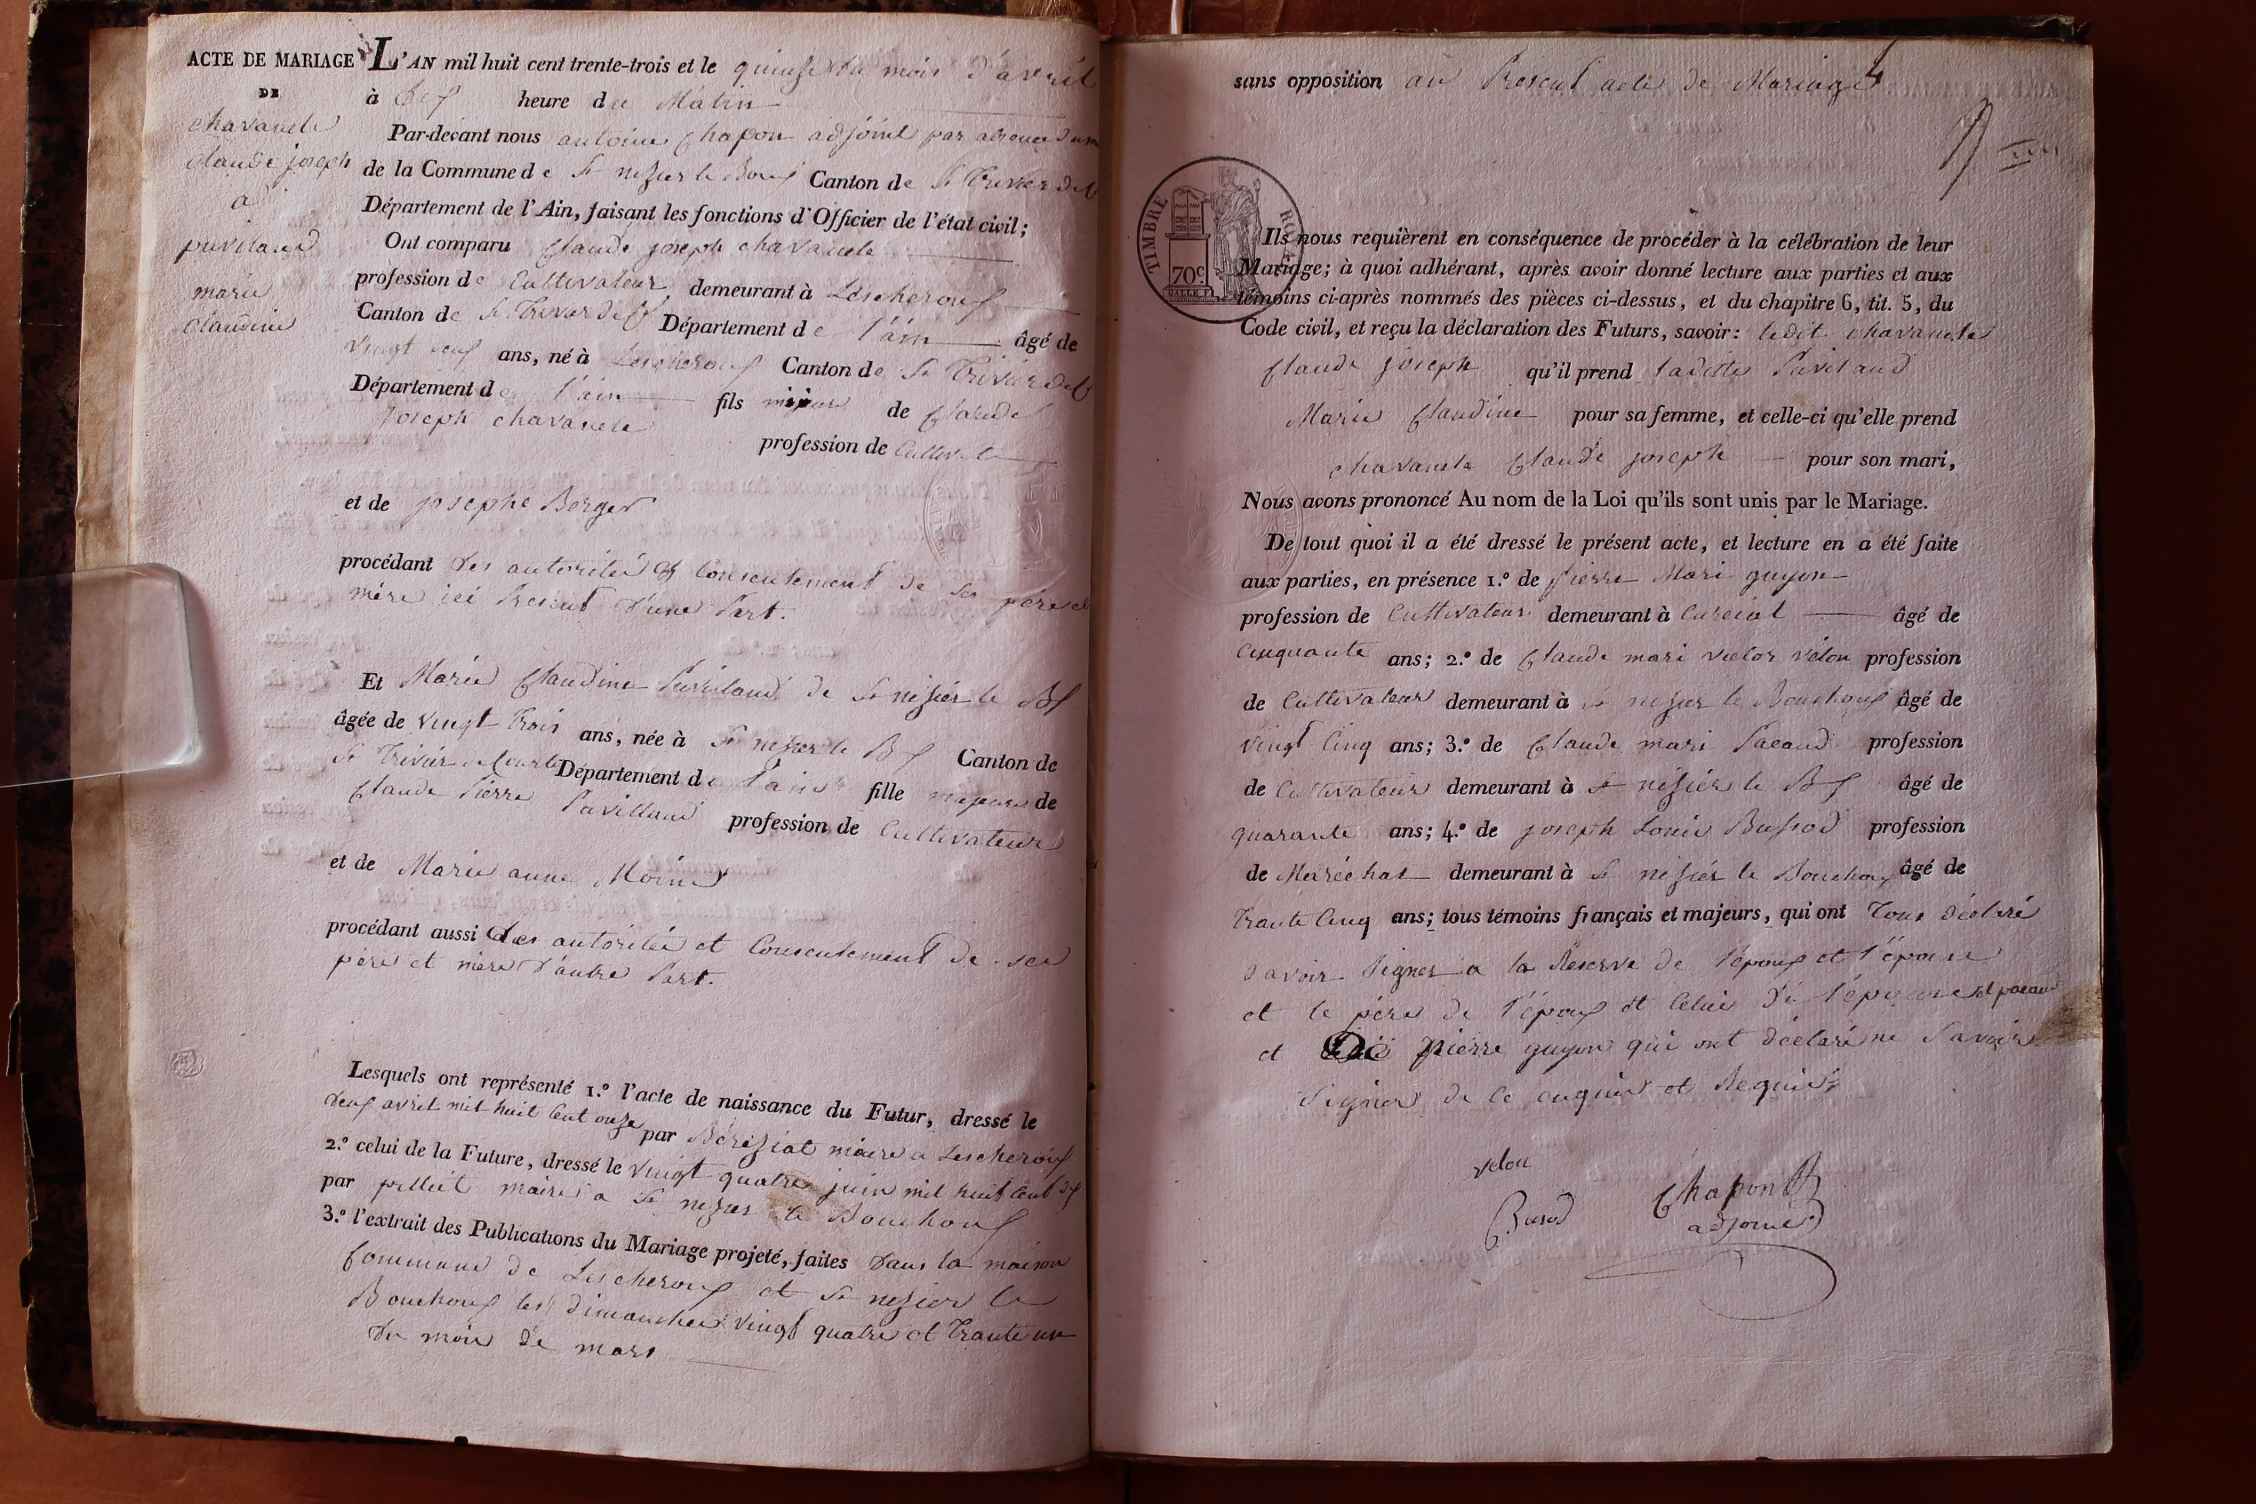 ACTE DE MARIAGE
DE
chavanele
claude joseph
a
puviland
marie
claudine
L'AN mil huit cent trente-trois et le quinze du mois d'avril
à dix heure du Matin
Par-devant nous antoine Chapon adjoint par absence du
de la Commune de St nisier le Canton de St Trivier de
Département de l'Ain, faisant les fonctions d'Officier de l'état civil;
Ont comparu Claude joseph chavanele
profession de Cultivateur demeurant à Lescheroux
Canton de St Trivier de Département de l'ain âgé de
vingt deux ans, né à Lescheroux Canton de St Trivier de
Département de l'ain fils de Claude
joseph chavanele
profession de
et de josephe Berger
procédant des autorités et Consentement de ses père et
mère ici Present d'une Part.
Et Marie Claudine Puviland de St nisier le Bx
âgée de vingt trois ans, née à St nisier le Bx Canton de
St Trivier de Courte Département de l'ain fille majeure de
Claude Pierre Puvilland profession de Cultivateur
et de Marie anne Moine
procédant aussi des autorités et Consentement de ses
père et mère d'autre Part.
Lesquels ont représenté 1.º l'acte de naissance du Futur, dressé le
deux avril mil huit Cent onze par maire a Lescheroux
2.º celui de la Future, dressé le vingt quatre juin mil huit Cent dix
par maire a St nisier le Bouchoux
3.º l'extrait des Publications du Mariage projeté, faites dans la maison
Commune de Lescheroux et St nisier le
Bouchoux les dimanches vingt quatre et trante un
du mois de mars
sans opposition au Present acte de Mariage
TIMBRE ROYAL
70c
Ils nous requièrent en conséquence de procéder à la célébration de leur
Mariage; à quoi adhérant, après avoir donné lecture aux parties et aux
témoins ci-après nommés des pièces ci-dessus, et du chapitre 6, tit. 5, du
Code civil, et reçu la déclaration des Futurs, savoir: ledit chavanele
Claude joseph qu'il prend laditte Puviland
Marie Claudine pour sa femme, et celle-ci qu'elle prend
chavanele Claude joseph pour son mari,
Nous avons prononcé Au nom de la Loi qu'ils sont unis par le Mariage.
De tout quoi il a été dressé le présent acte, et lecture en a été faite
aux parties, en présence 1.º de pierre Mari guyon
profession de Cultivateur demeurant à Curciat âgé de
Cinquante ans; 2.º de Claude mari victor vélon profession
de Cultivateur demeurant à St nisier le Bouchoux âgé de
vingt Cinq ans; 3.º de Claude mari Pacaud profession
de Cultivateur demeurant à St nisier le Bx âgé de
quarante ans; 4.º de joseph Louis Bussod profession
de Maréchal demeurant à St nisier le Bouchoux âgé de
trante Cinq ans; tous témoins français et majeurs, qui ont tous déclaré
savoir signer a la Reserve de l'époux et l'épouse
et le père de l'époux et Celui de l'épouse et pacaud
et pierre guyon qui ont déclaré ne savoir
signer de ce enquis et Requis
velon
Busod
Chapon
adjoint